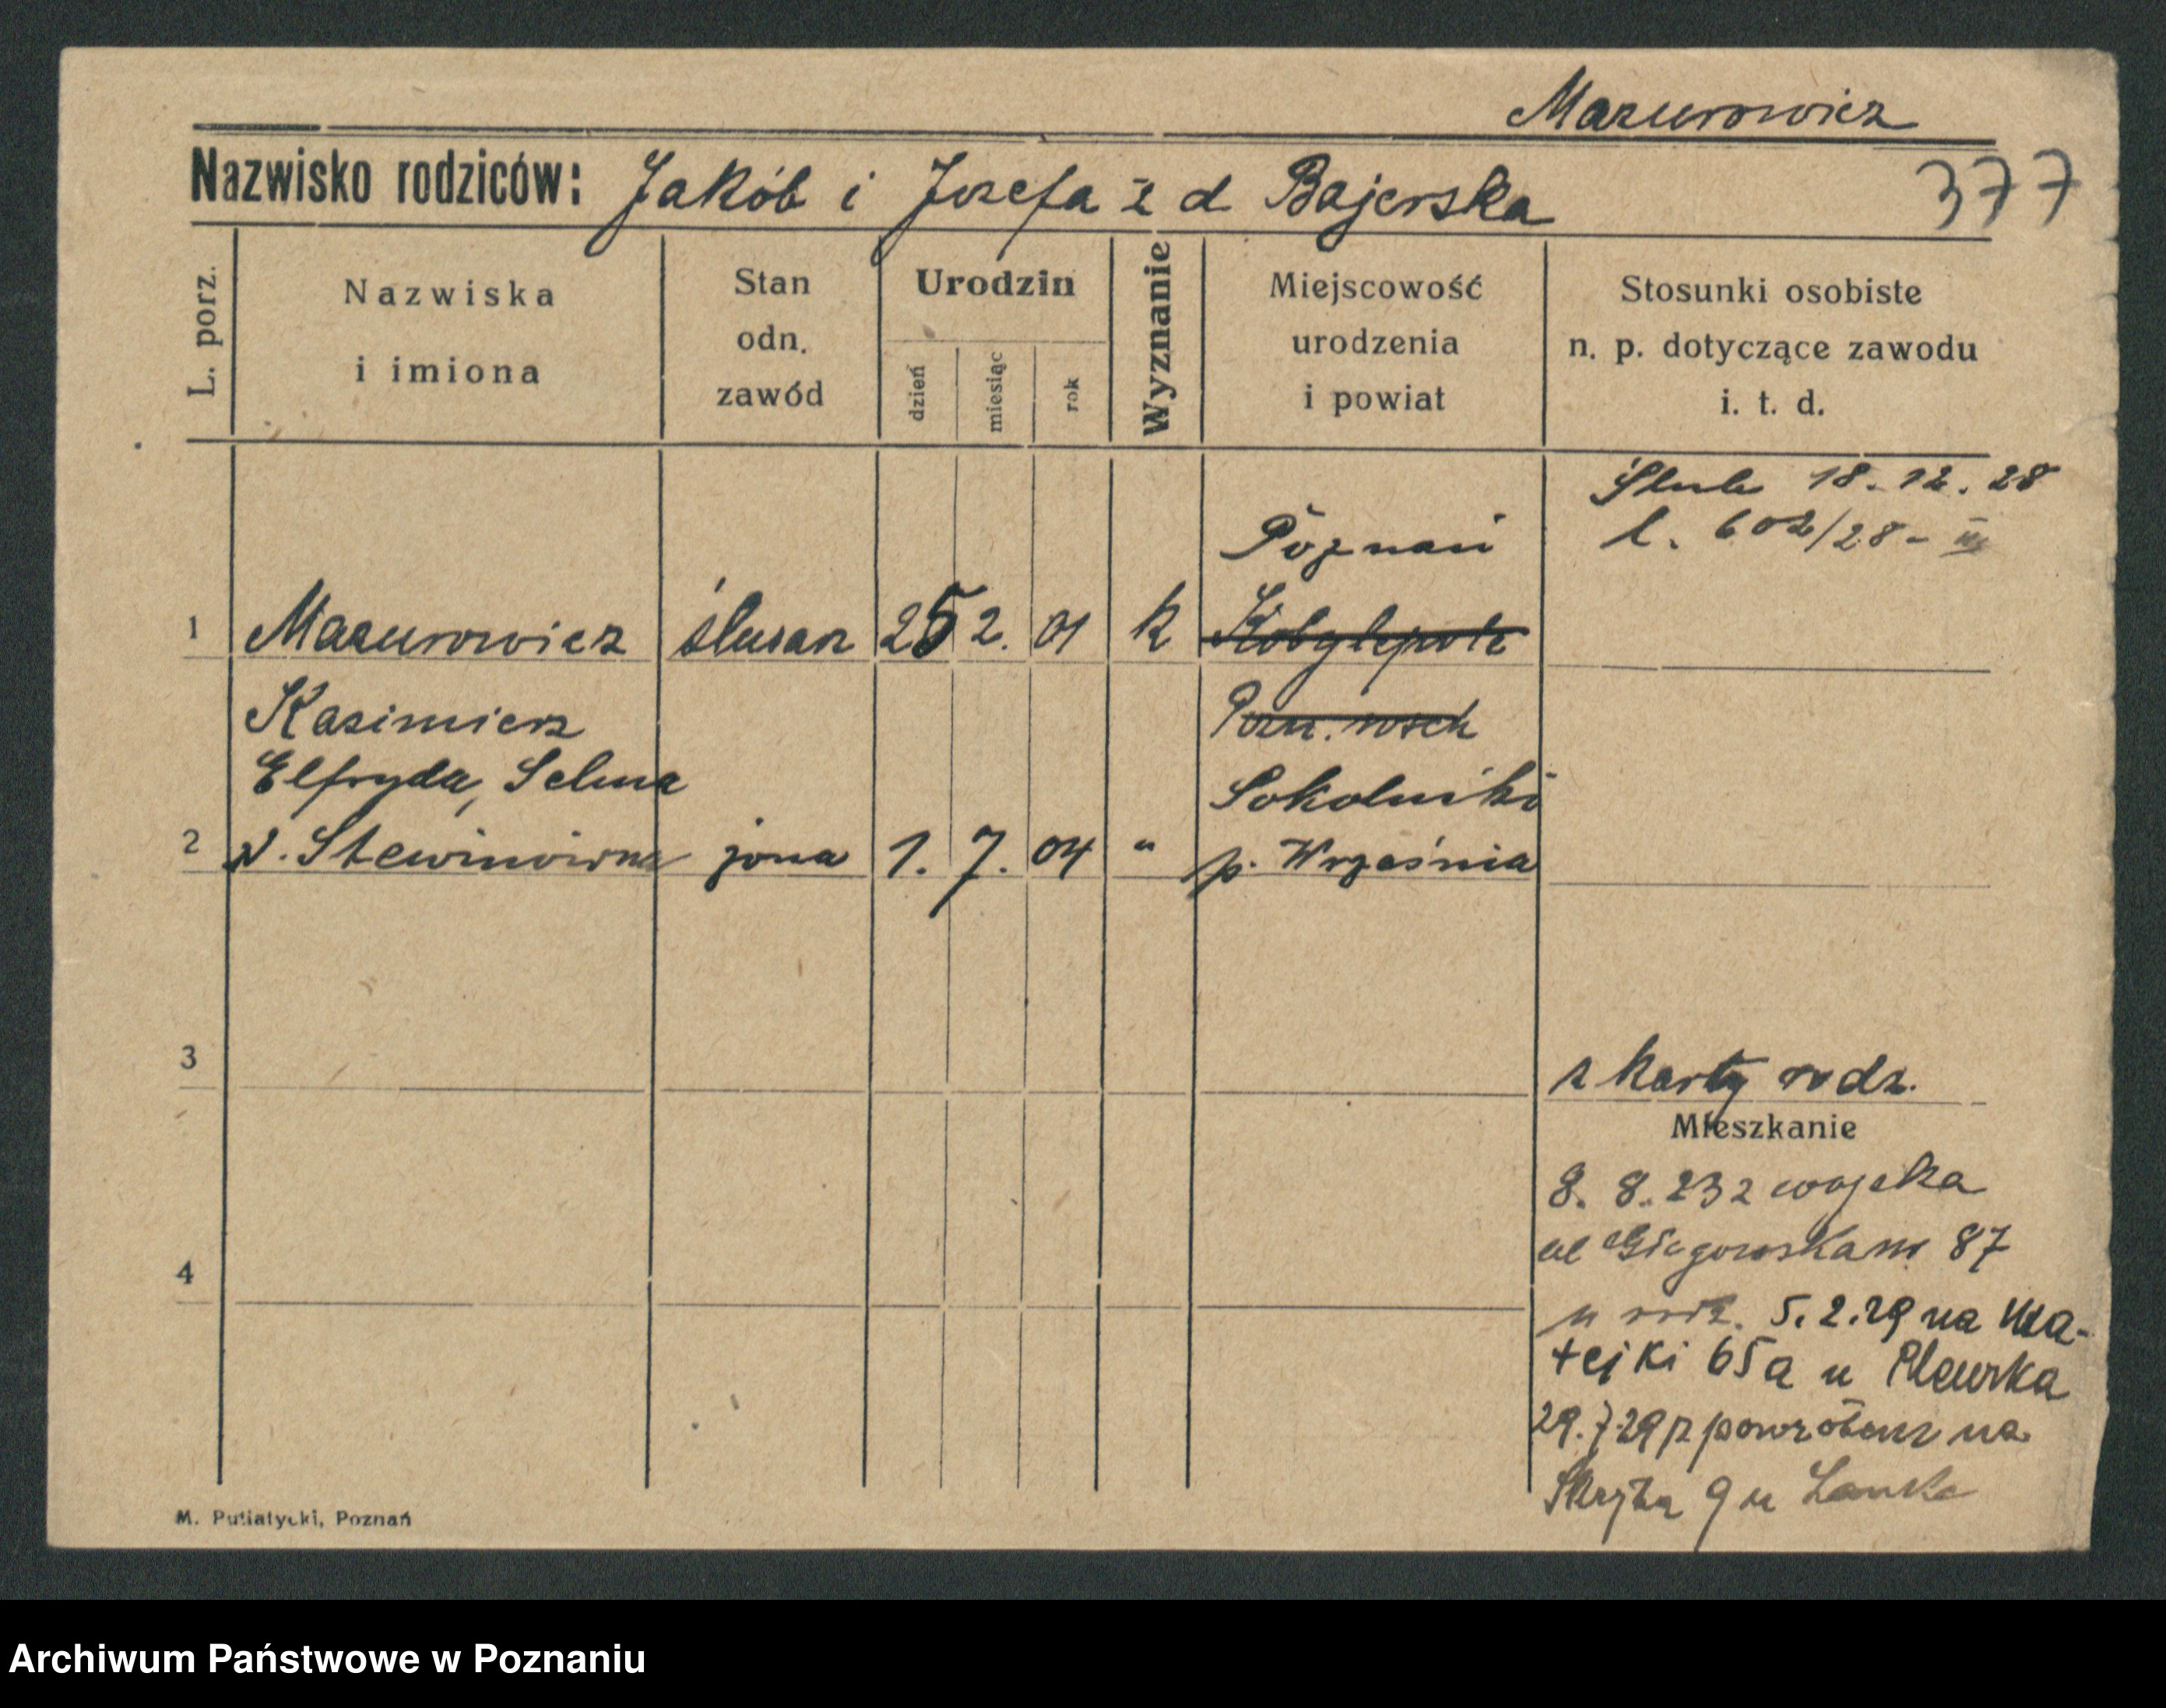 Mazurowicz
Nazwisko rodziców: Jakób i Józefa z d Bajerska
377
L. porz.
Nazwiska
i imiona
Stan
odn.
zawód
Urodzin
dzień
miesiąc
rok
Wyznanie
Miejscowość
urodzenia
i powiat
Stosunki osobiste
n. p. dotyczące zawodu
i. t. d.
Ślub 18.12.28
l. 602/28 - III
Poznań
1 Mazurowicz ślusarz 25 2. 01 k Kobylepole
Kazimierz Pozn. wsch
Elfryda, Selma Sokolniki
2 żona 1. 7. 04 " p. Września
3
z karty rodz.
Mieszkanie
8. 8. 23 z wojska
87
4
u rodz. 5.2.29 na Ma-
tejki 65a u
29.7.29 z powrotem na
9 u
M. Putiatycki, Poznań
Archiwum Państwowe w Poznaniu